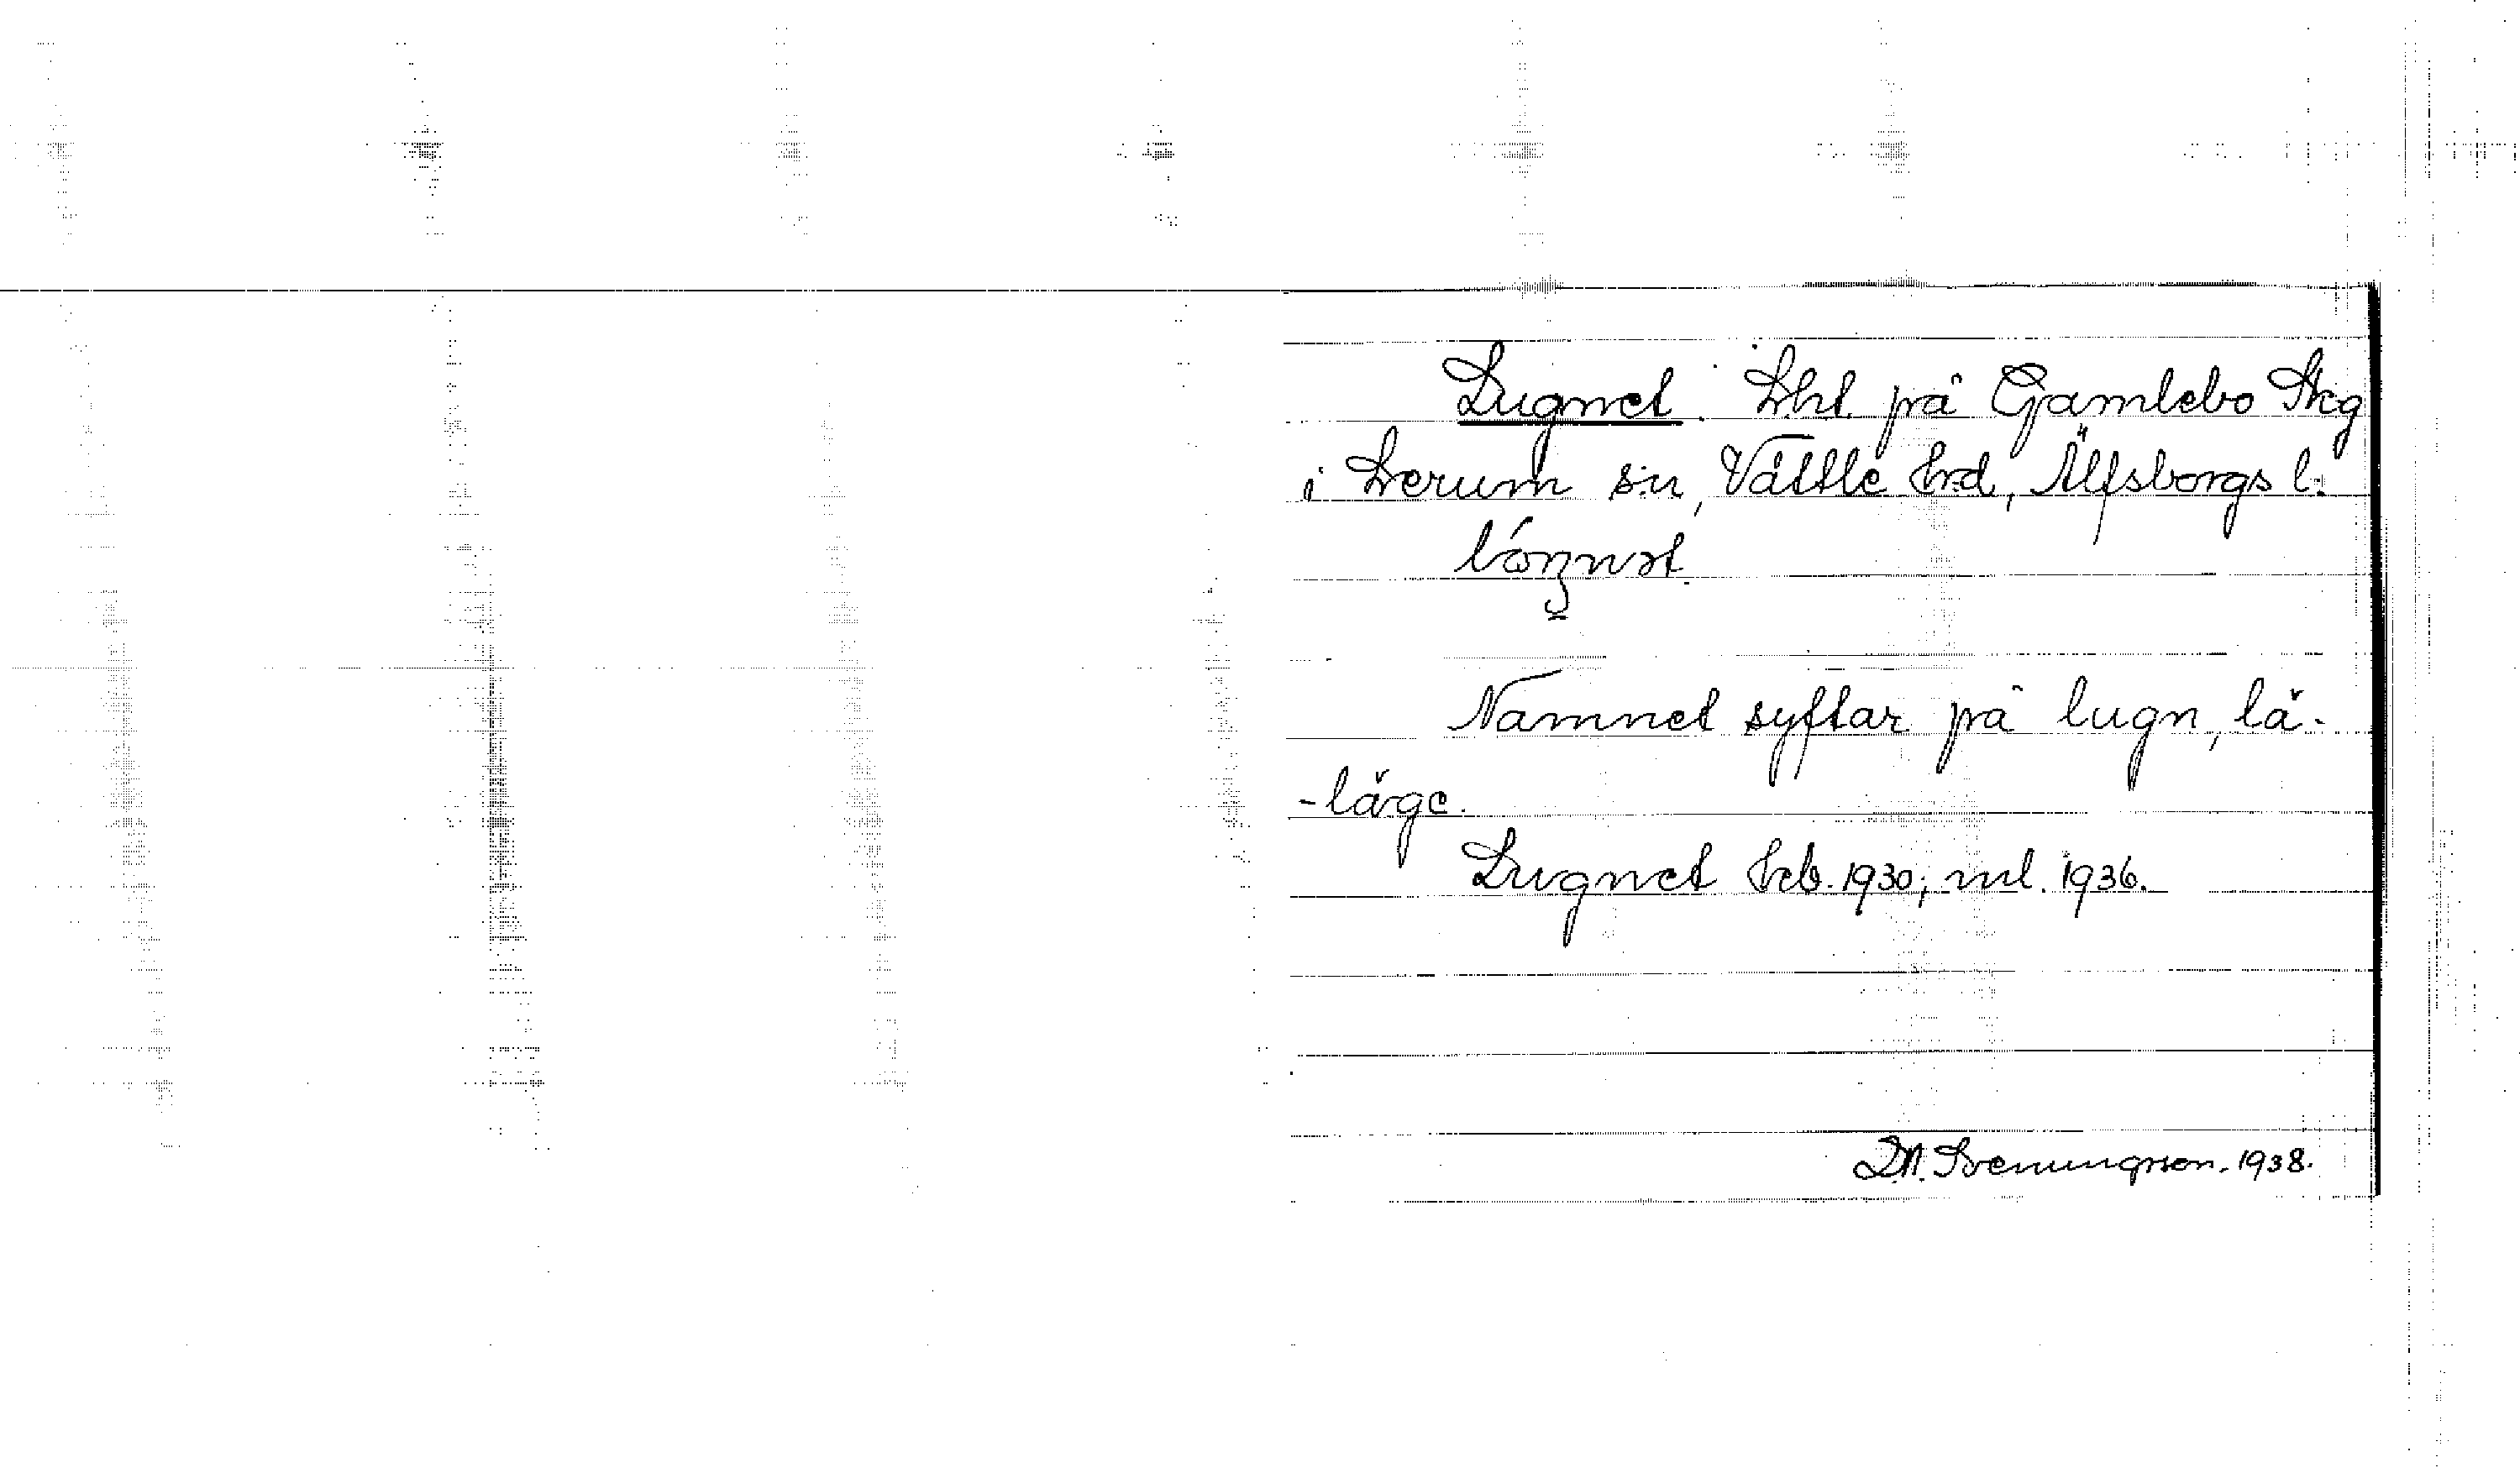 Lugnet. Lht. på Gamlebo Skg
i Lerum sn, Vättle hrd, Älfsborgs l.
Namnet syftar på lugn, lä-
-läge.
Lugnet Jrb. 1930; ml. 1936.
D.N. Svenungsson. 1938.